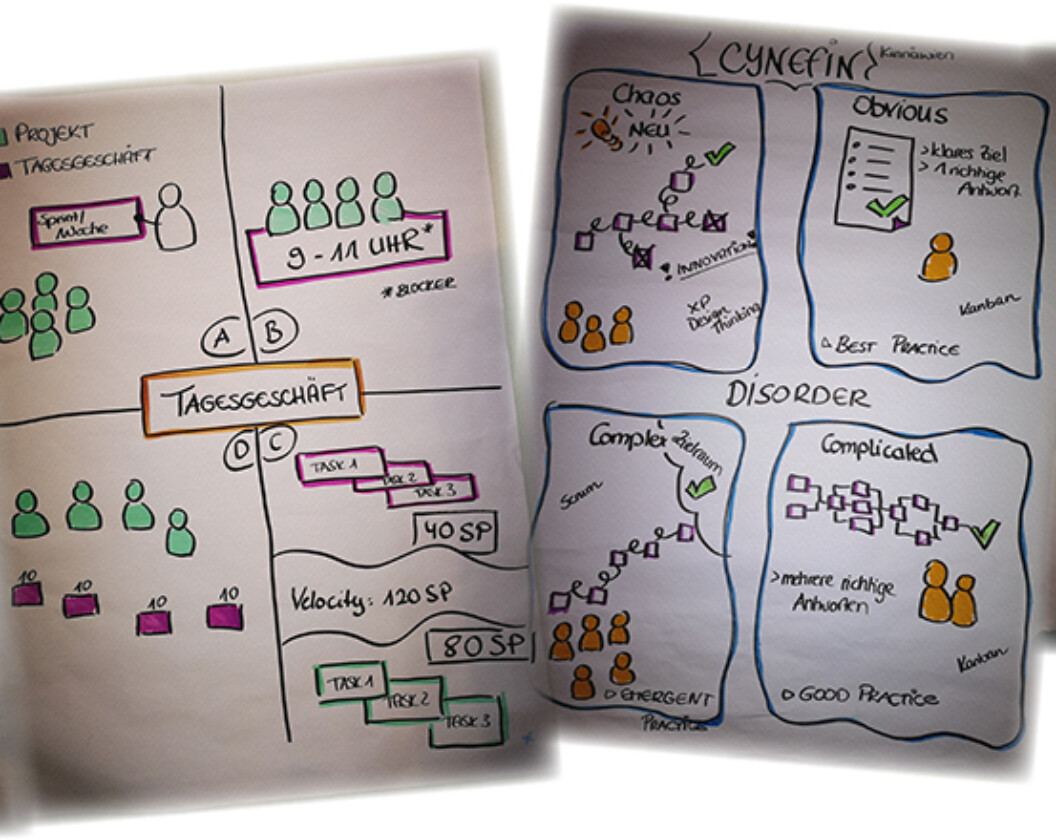 PROJEKT
TAGESGESCHÄFT
Sprint/
Woche
9-11 UHR*
*BLOCKER
A
B
TAGESGESCHÄFT
D
C
TASK 1
TASK 2
TASK 3
40 SP
Velocity: 120 SP
80 SP
TASK 1
TASK 2
TASK 3
10
10
10
10
{CYNEFIN}
Chaos
NEU
! INNOVATION!
XP
Design
Thinking
Obvious
>klares Ziel
>1 richtige
Antwort
Kanban
BEST PRACTICE
DISORDER
Complex
Zielraum
Scrum
EMERGENT
PRACTICE
Complicated
>mehrere richtige
Antworten
Kanban
GOOD PRACTICE